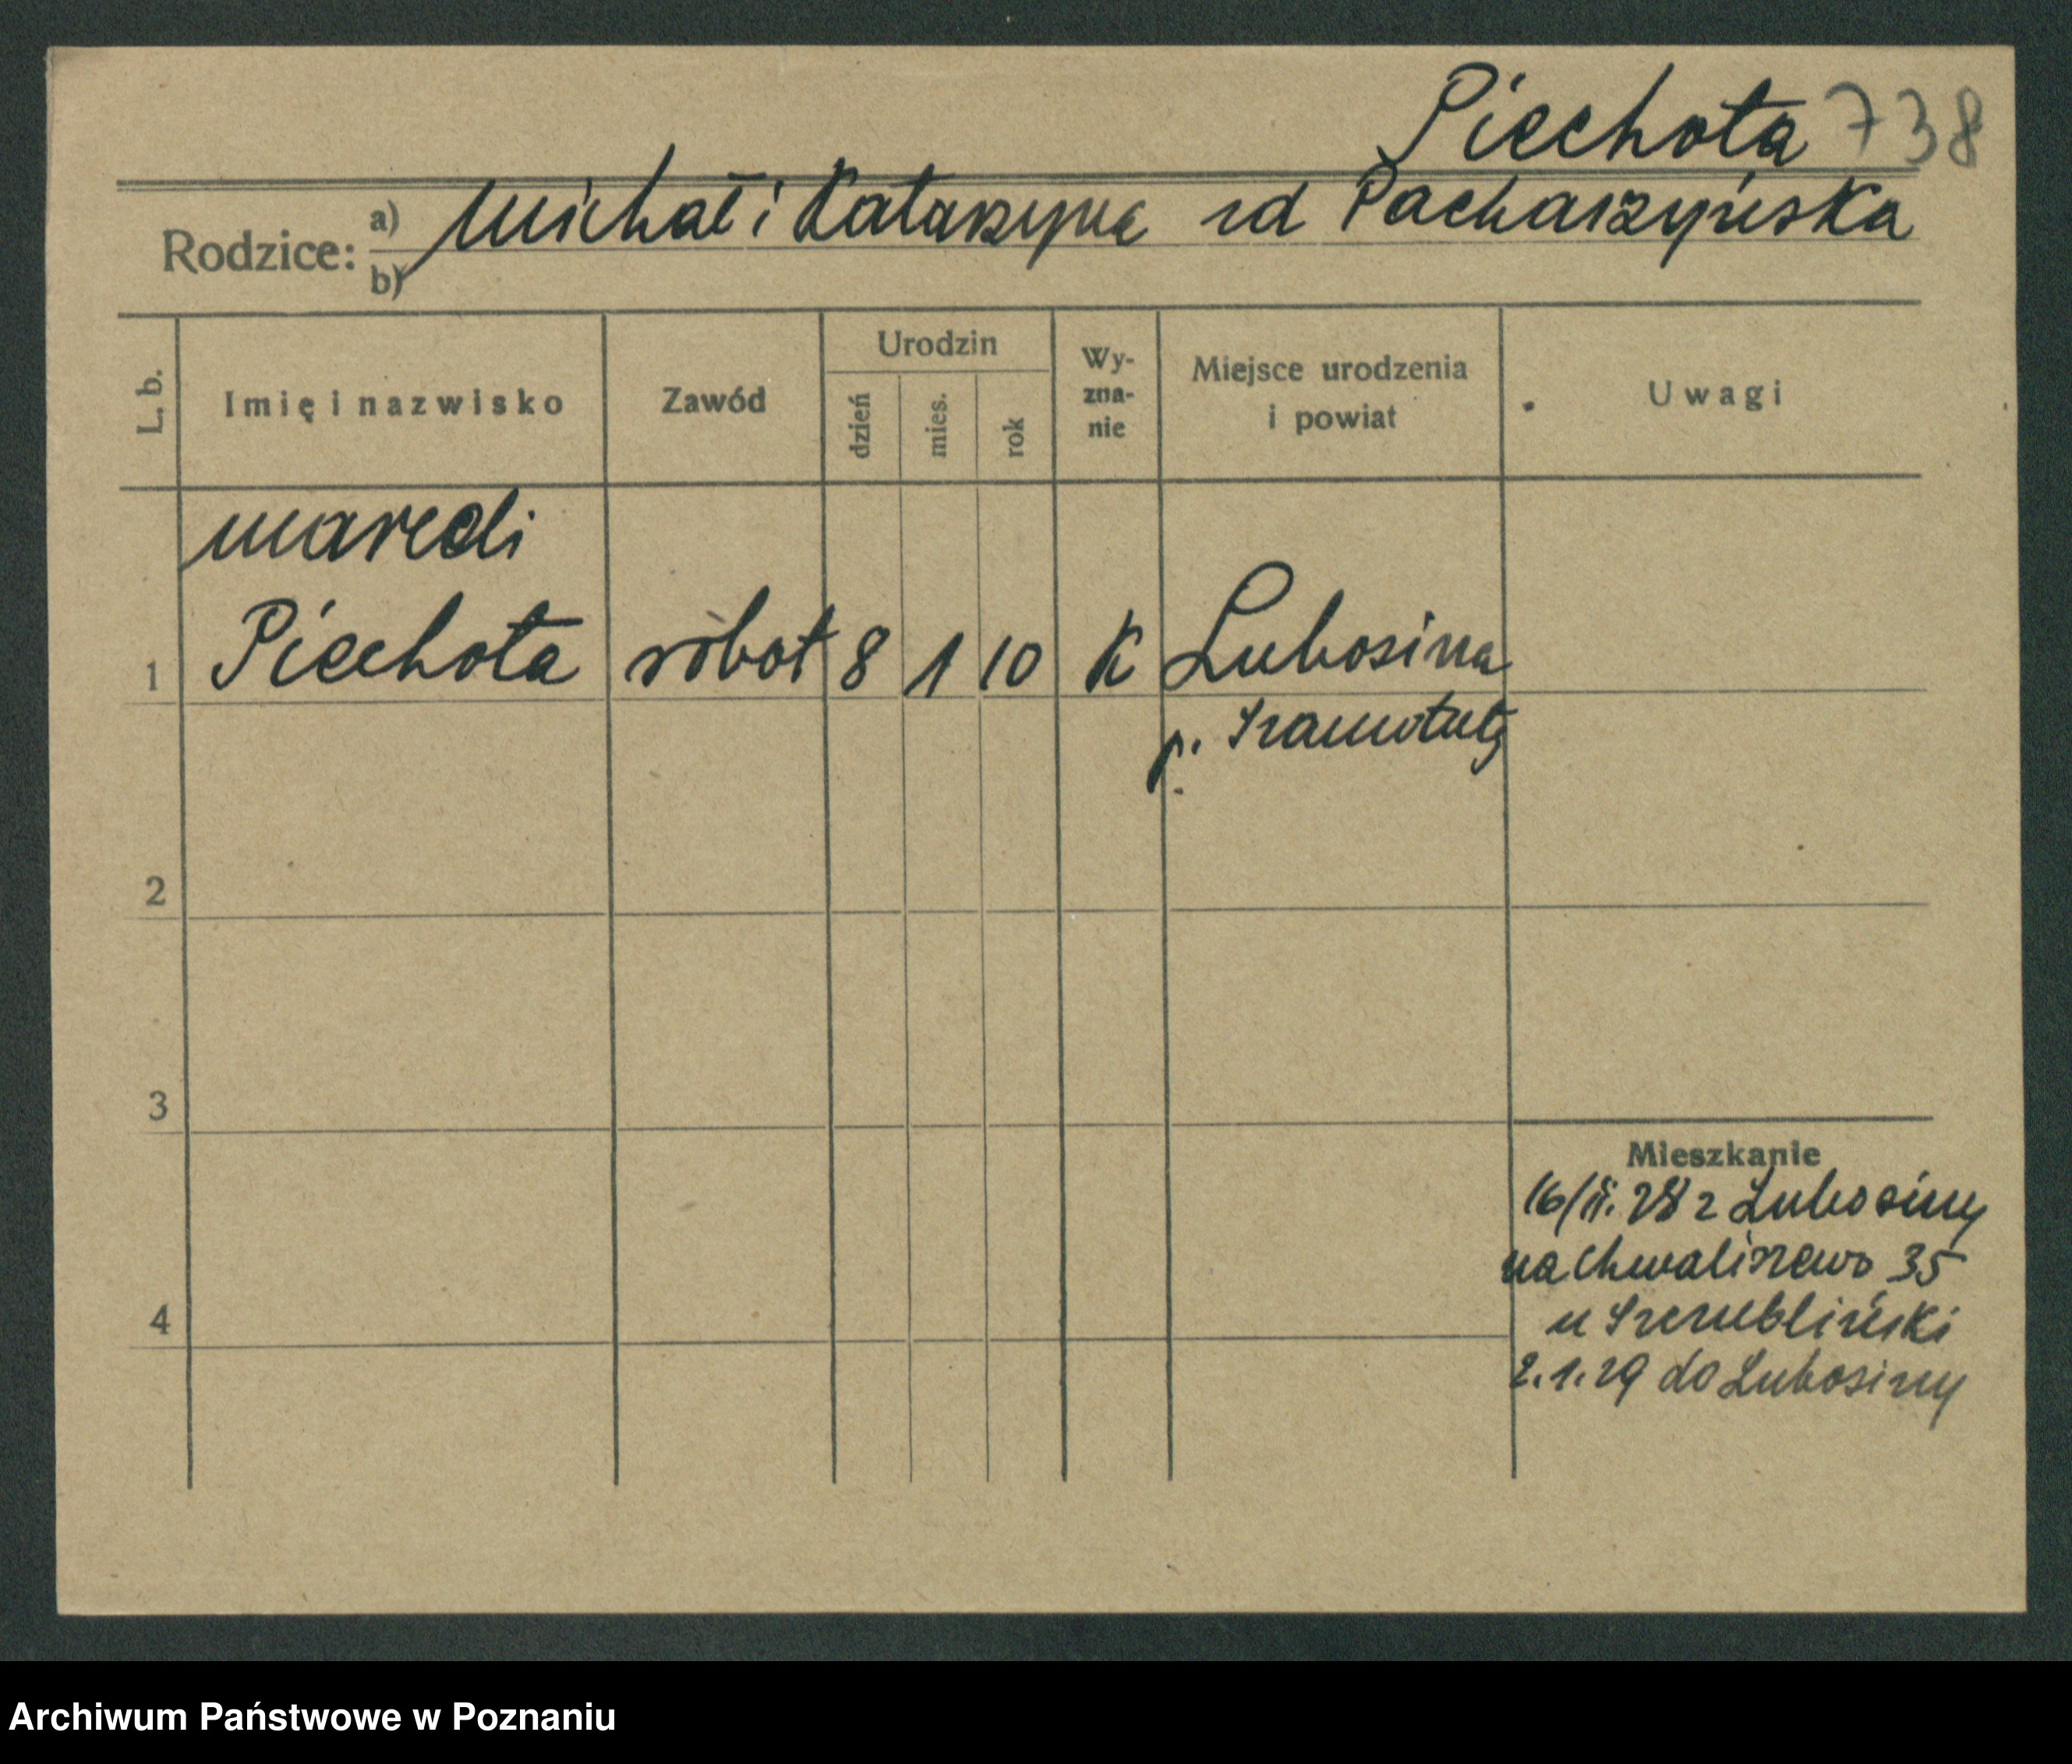 Piechota 738
Rodzice: a) Michał i Katarzyna zd Pacharzyńska
b)
L. b. Imię i nazwisko Zawód Urodzin dzień mies. rok Wy-zna-nie Miejsce urodzenia i powiat Uwagi
1 Piechota robot 8 1 10 K Lubosina
p. Szamotuły
2
3
Mieszkanie
16/II. 28 z Lubosiny
na Chwaliszewo 35
4 u
2.1.29 do Lubosiny
Archiwum Państwowe w Poznaniu